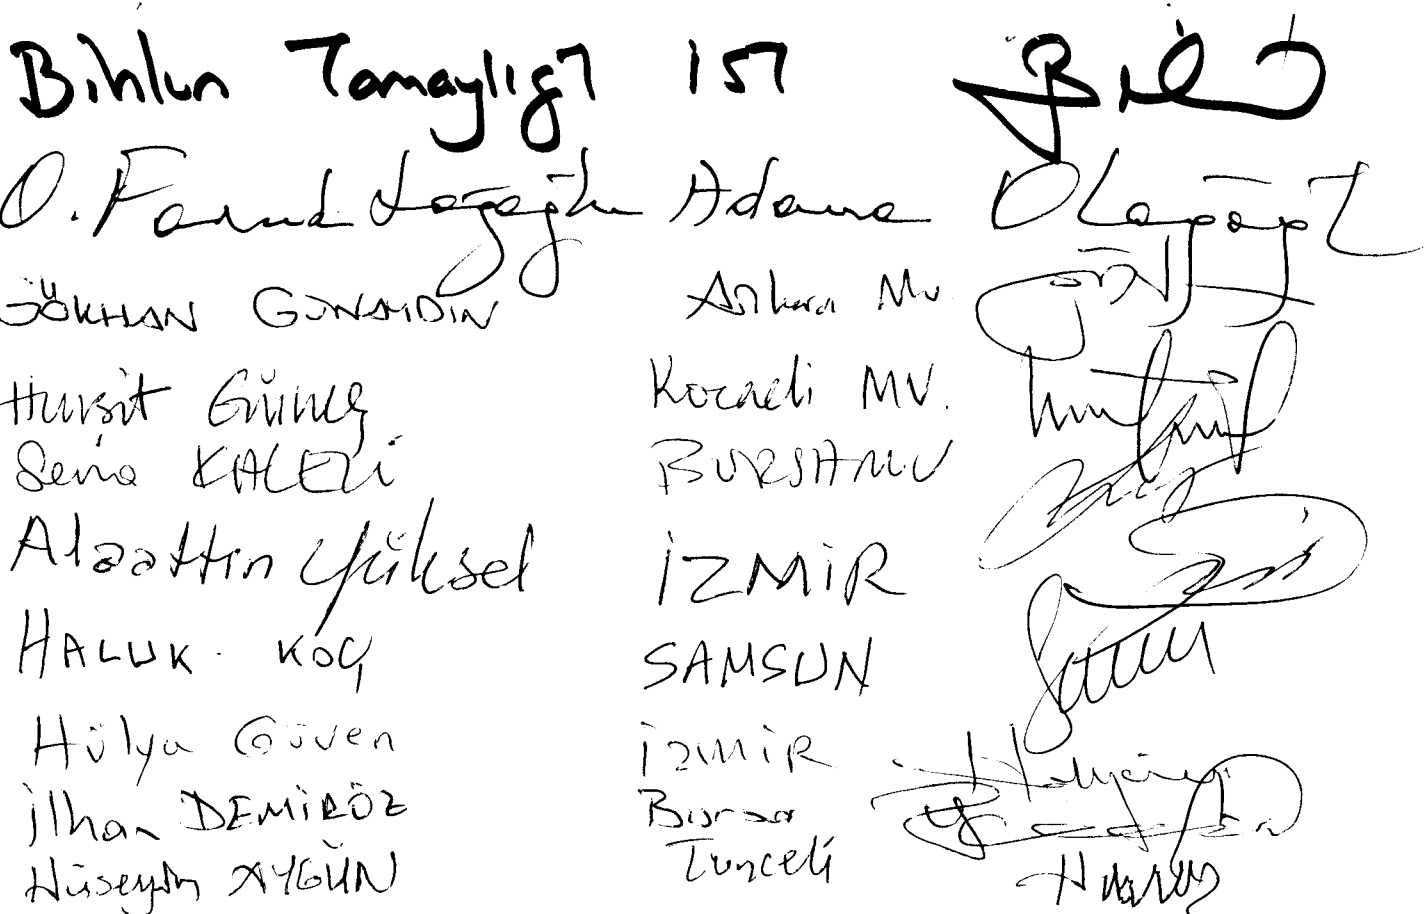 Bihlun Tamaylıgil İST
O. Faruk Loğoğlu Adana
GÖKHAN GÜNAYDIN Ankara Mv.
Hurşit Güneş Kocaeli MV.
Sena KALELİ BURSA MV
Alaattin Yüksel İZMİR
HALUK KOÇ SAMSUN
Hülya Güven İZMİR
İlhan DEMİRÖZ Bursa
Hüseyin AYGÜN Tunceli